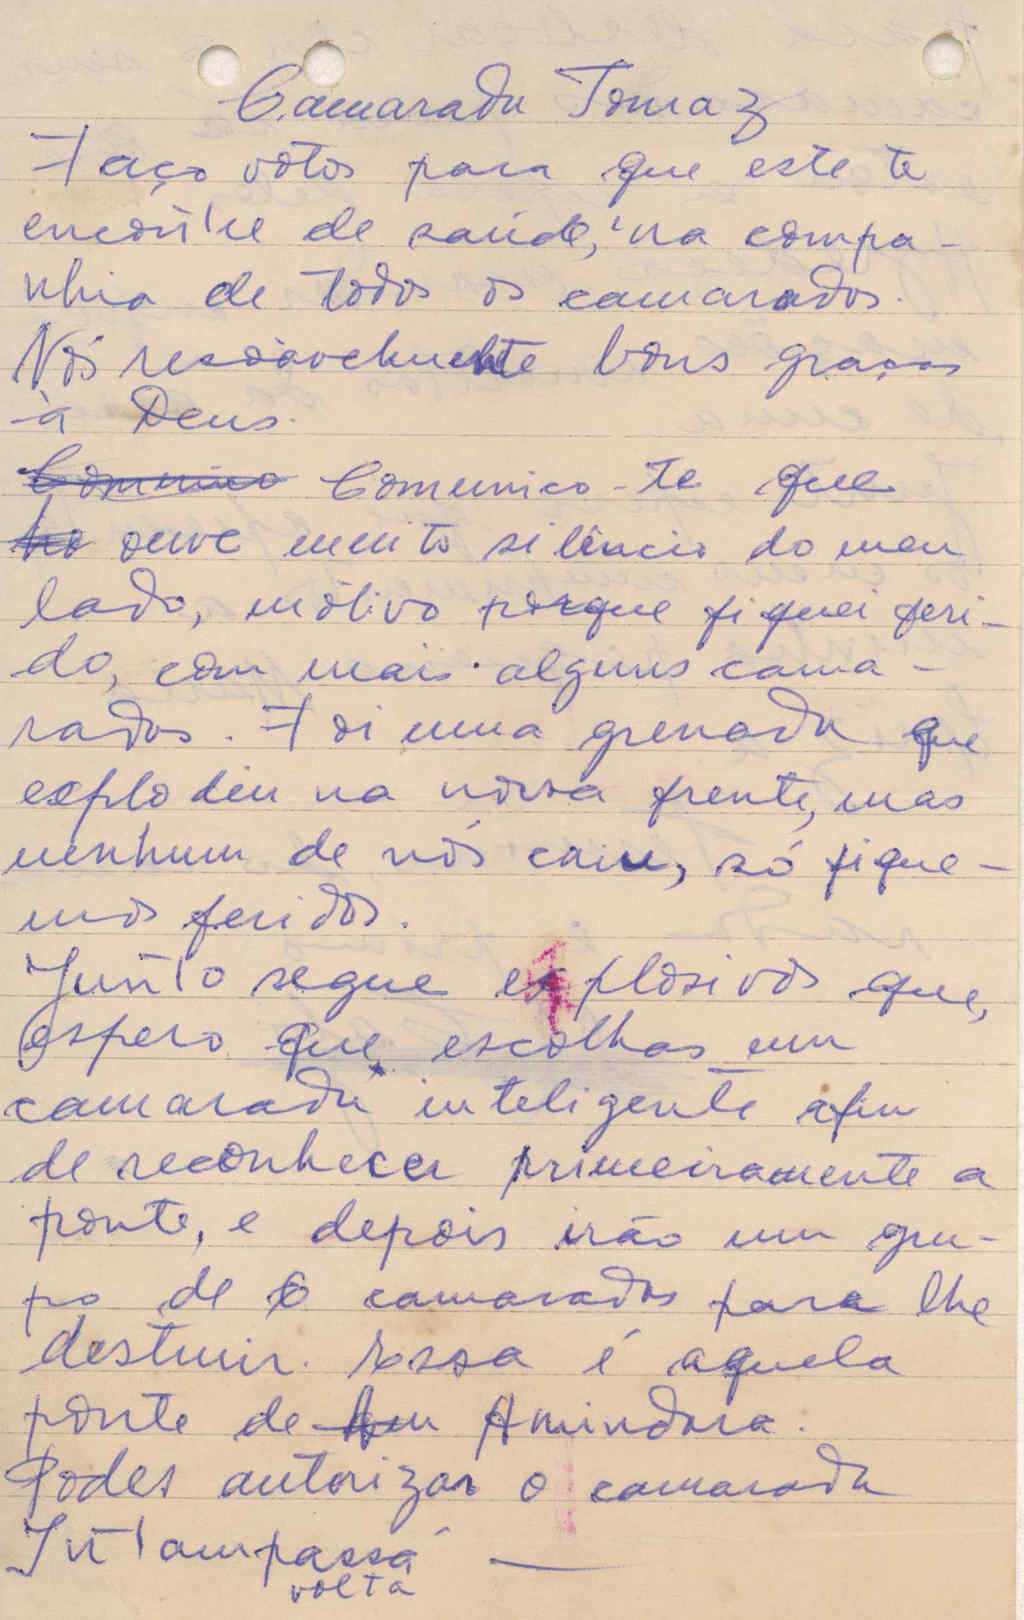 Camarada Tomaz
Faço votos para que este te
encontre de saúde, na compa-
nhia de todos os camarados.
Nós resoàvelmente bons graças
à Deus.
Comunico Comunico-te que
ho ouve muito silêncio do meu
lado, motivo porque fiquei feri-
do, com mais alguns cama-
radas. Foi uma grenada que
explodiu na nossa frente, mas
nenhum de nós caiu, só fique-
mos feridos.
Junto segue explosivos que,
espero que escolhas um
camarada inteligente afim
de reconhecer primeiramente a
ponte, e depois irão um gru-
po de 6 camarados para lhe
destruir. Essa é aquela
ponte de Am Amindara.
Podes autorizar o camarada
Intampassá —
volta